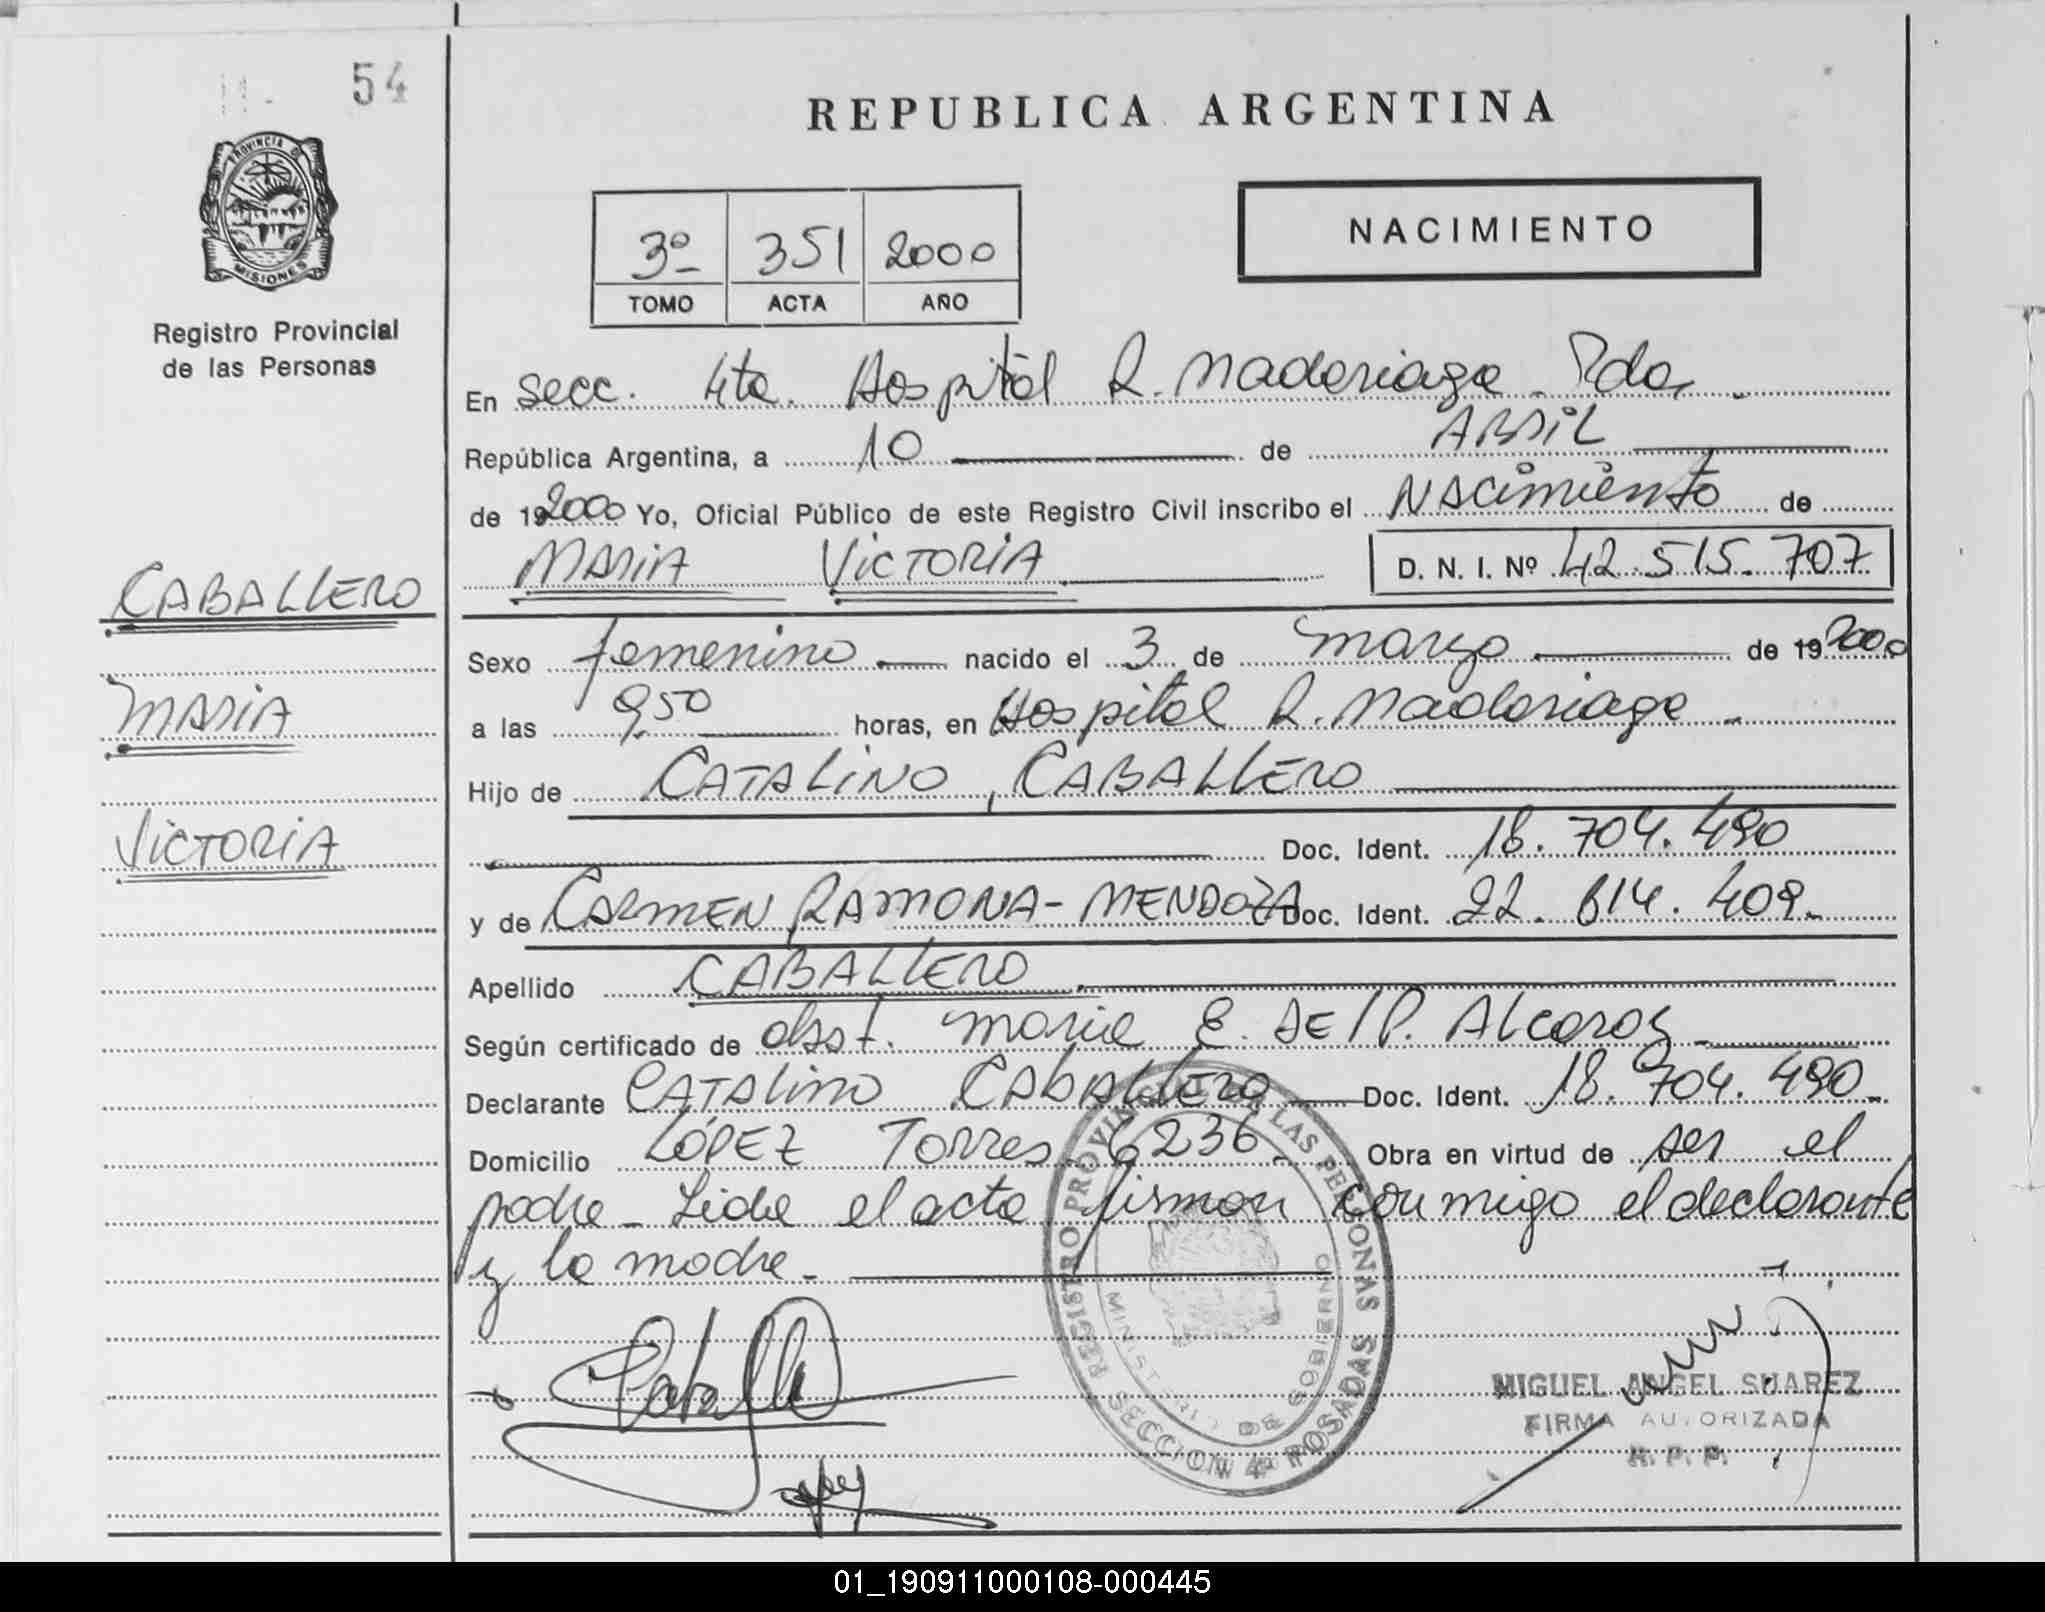 54
PROVINCIA DE
MISIONES
Registro Provincial
de las Personas
REPUBLICA ARGENTINA
3º 351 2000
TOMO ACTA AÑO
NACIMIENTO
En secc. 4ta. Hospital R. Madariaga - Pdas -
República Argentina, a 10 de ABRIL
de 192000 Yo, Oficial Público de este Registro Civil inscribo el NACimiento de
MARIA VICTORIA D. N. I. Nº 42.515.707
CABALLERO
Sexo femenino nacido el 3 de marzo de 192000
MARIA
a las 9,50 horas, en Hospital R. Madariaga -
Hijo de CATALINO, CABALLERO
VICTORIA
Doc. Ident. 18.704.490
y de CARMEN RAMONA - MENDOZA Doc. Ident. 22.614.409.
Apellido CABALLERO
Según certificado de obst. Maria E. DE IP. Alcaraz
Declarante CATALINO CABALLERO Doc. Ident. 18.704.490
Domicilio LÓPEZ TORRES 6236 Obra en virtud de ser el
padre - Leida el acta firman conmigo el declarante
y la madre -
REGISTRO PROVINCIAL DE LAS PERSONAS
MINISTERIO DE GOBIERNO
SECCION 4ª POSADAS
MIGUEL ANGEL SUAREZ
FIRMA AUTORIZADA
R. P. P.
01_190911000108-000445